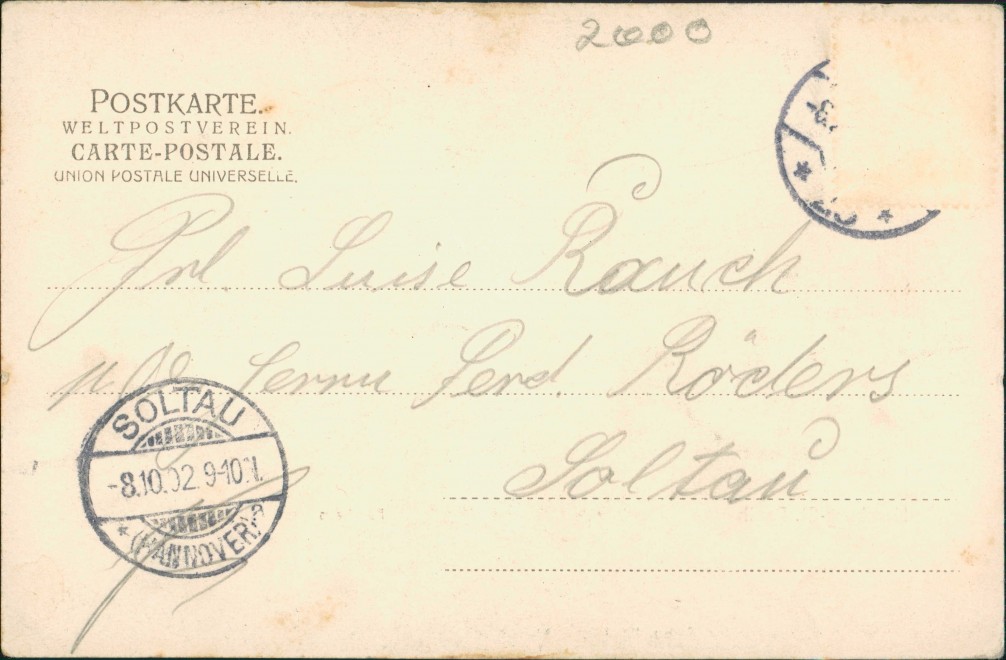 2000
POSTKARTE.
WELTPOSTVEREIN.
CARTE-POSTALE.
UNION POSTALE UNIVERSELLE.
Frl. Luise Rauch
Herrn Ferd. Röders
Soltau
SOLTAU
-8.10.02.9-10.
* (HANNOVER)